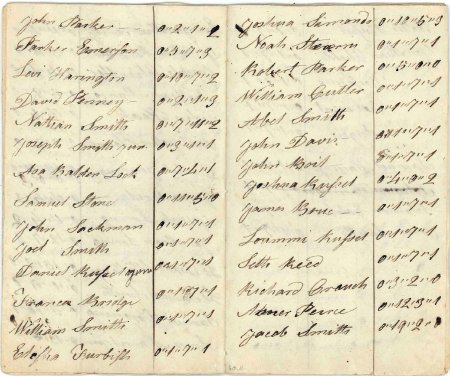 John Parker 0"2"1"2
Parker Emerson 0"3"7"3
Levi Warington 0"10"7"2
David Penney 0"2"1"3
Nathan Smith 0"7"11"2
Joseph Smith jun 0"3"4"1
Asa 0"7"4"1
Samuel Stone 0"11"5"0
John Jackman 0"1"7"1
Joel Smith 0"1"7"1
Daniel Russel 0"1"7"1
Francis Bridge 0"1"7"1
William Smith 0"1"7"1
Elisha Furbish 0"1"7"1
Joshua Simonds 0"10"5"3
Noah Stearns 0"1"7"1
Robert Parker 0"5"0"0
William Cutler 0"1"7"1
Abel Smith 0"1"7"1
John Davis 0"1"7"1
John 0"1"7"1
Joshua Russel 0"4"9"2
James 0"1"7"1
Russel 0"1"7"1
Seth Reed 0"1"7"1
Richard Crouch 0"3"2"0
Abner Peirce 0"12"3"1
Jacob Smith 0"19"2"0